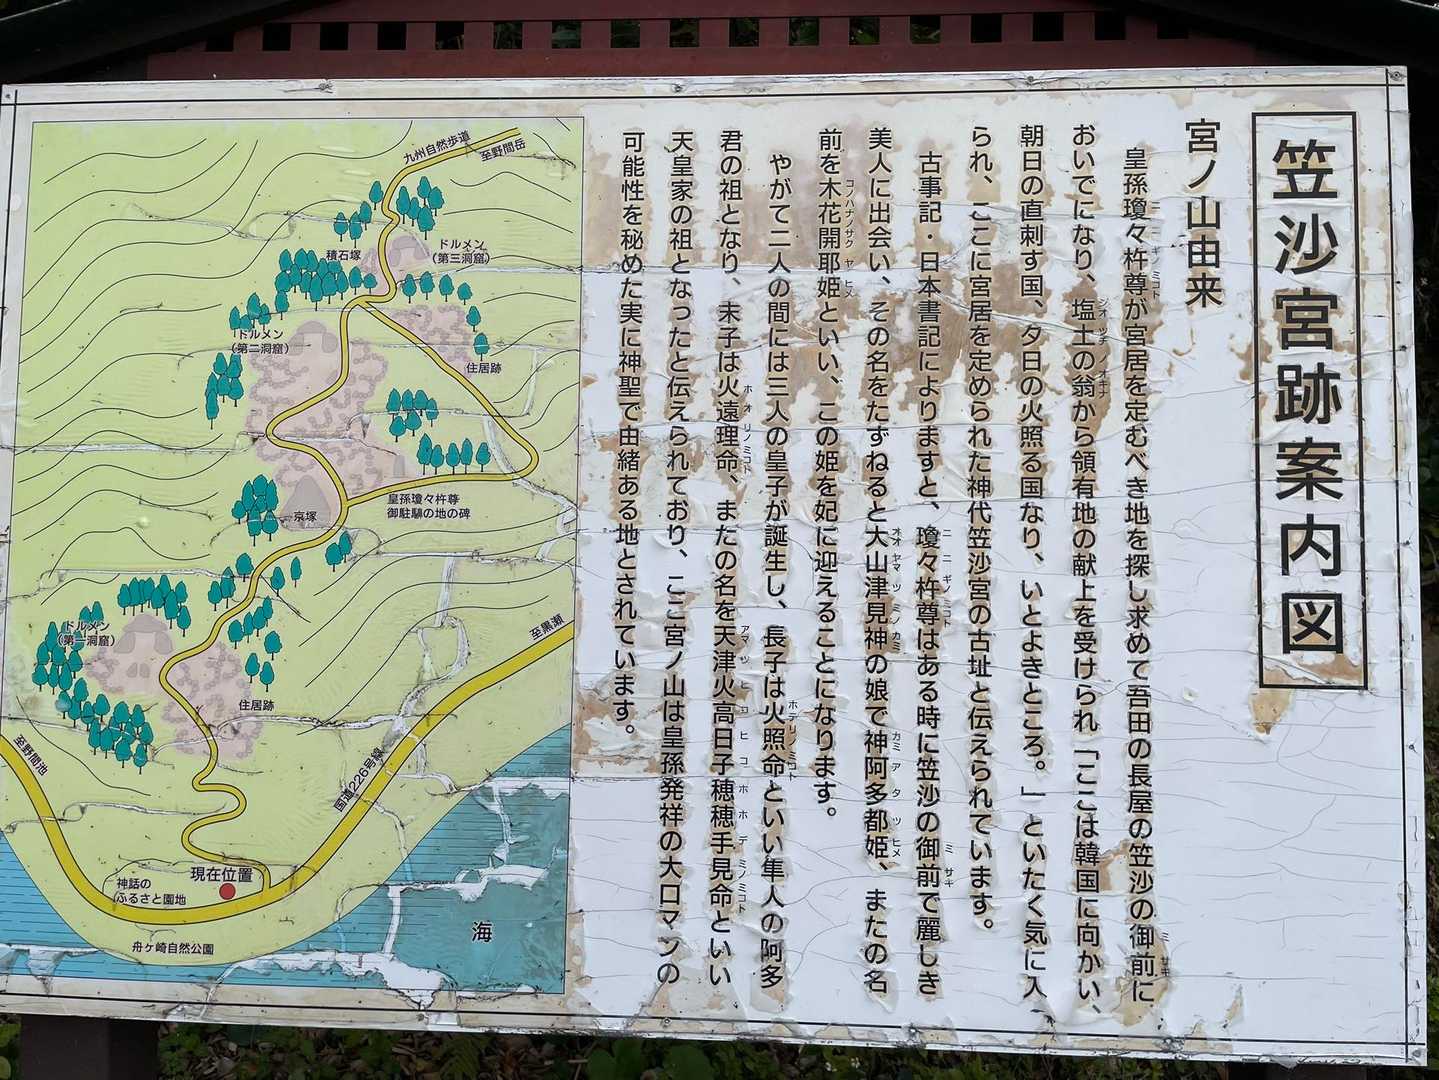 笠沙宮跡案内図
宮ノ山由来
皇孫瓊々杵尊が宮居を定むべき地を探し求めて吾田の長屋の笠沙の御前に
おいでになり、塩土の翁から領有地の献上を受けられ「ここは韓国に向かい、
朝日の直刺す国、夕日の火照る国なり、いとよきところ。」といたく気に入
られ、ここに宮居を定められた神代笠沙宮の古址と伝えられています。
古事記・日本書記によりますと、瓊々杵尊はある時に笠沙の御前で麗しき
美人に出会い、その名をたずねると大山津見神の娘で神阿多都姫、またの名
前を木花開耶姫といい、この姫を妃に迎えることになります。
やがて二人の間には三人の皇子が誕生し、長子は火照命といい隼人の阿多
君の祖となり、末子は火遠理命、またの名を天津火高日子穂穂手見命といい
天皇家の祖となったと伝えられており、ここ宮ノ山は皇孫発祥の大ロマンの
可能性を秘めた実に神聖で由緒ある地とされています。
九州自然歩道
至野間岳
積石塚
ドルメン
（第三洞窟）
ドルメン
（第二洞窟）
住居跡
皇孫瓊々杵尊
御駐騨の地の碑
京塚
ドルメン
（第一洞窟）
住居跡
至黒瀬
至野間池
国道226号線
現在位置
神話の
ふるさと園地
舟ヶ崎自然公園
海